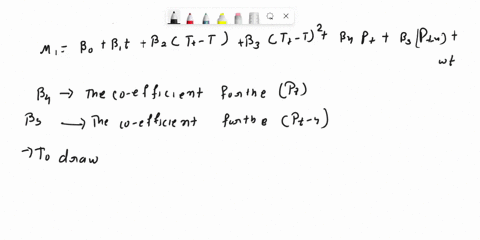 M₁ = β₀ + β₁t + β₂(Tt-T) + β₃(Tt-T)² + β₄ Pt + β₅(Pt-4) +
wt
β₄ → The co-efficient forthe (Pt)
β₅ → The co-efficient forthe (Pt-4)
→ To draw